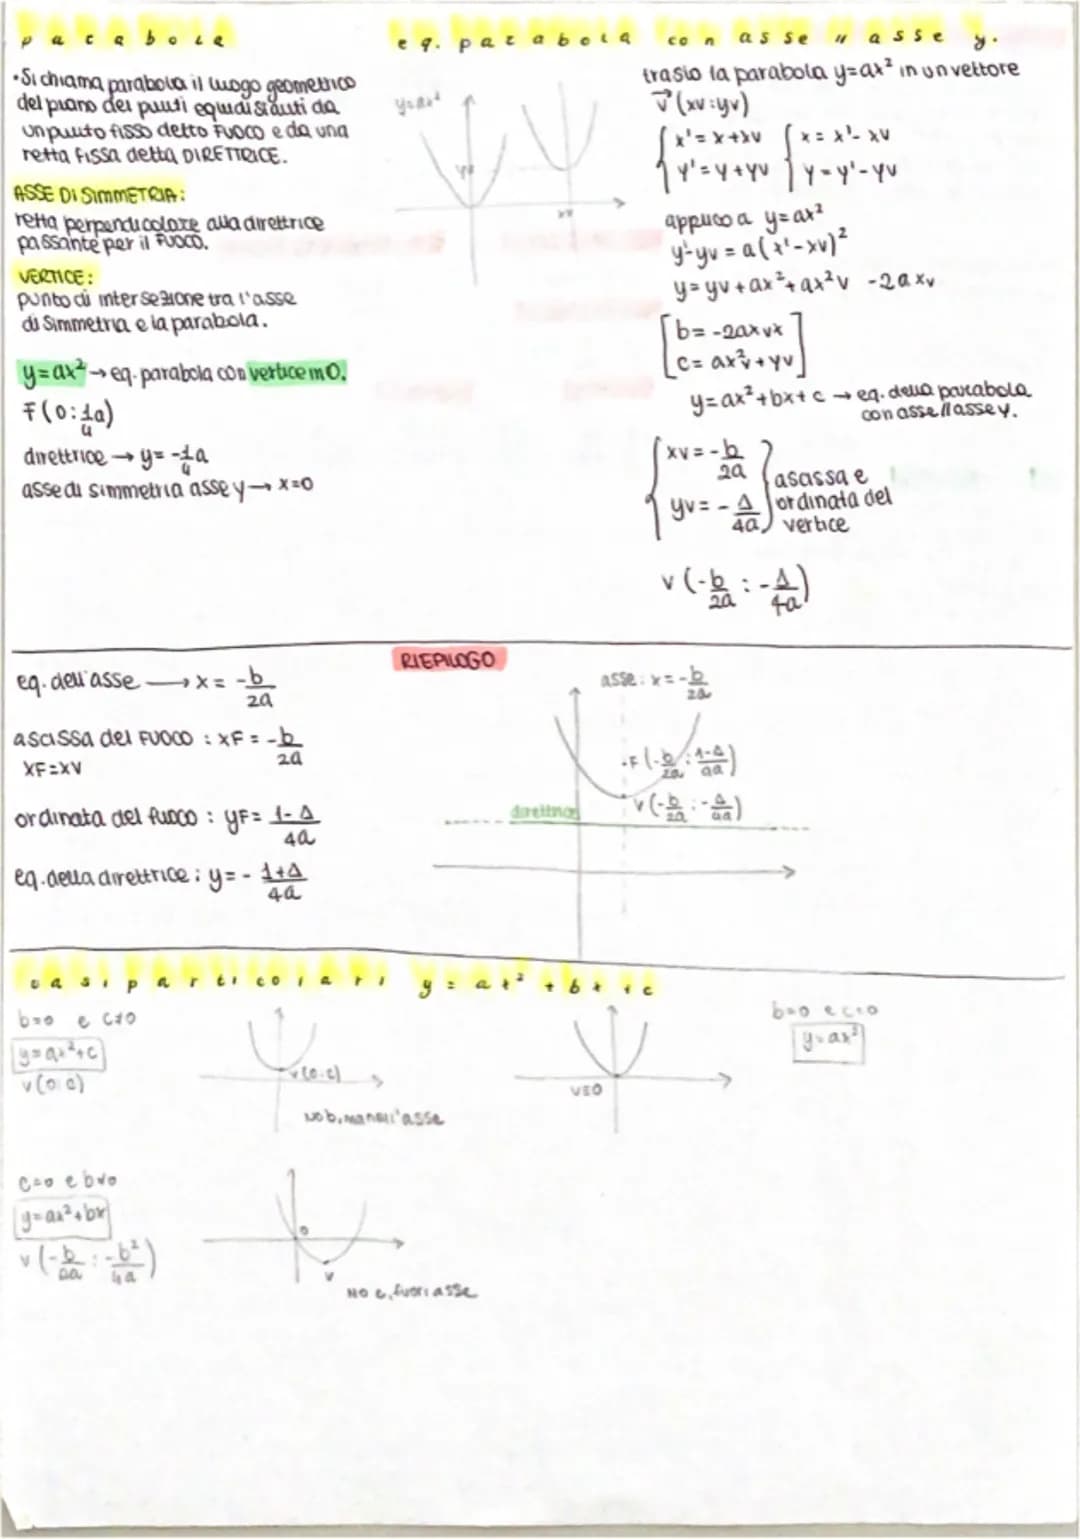 parabola
• Si chiama parabola il luogo geometrico
del piano dei punti equidistanti da
un punto fisso detto FUOCO e da una
retta fissa detta DIRETTRICE.
ASSE DI SIMMETRIA:
retta perpendicolare alla direttrice
passante per il FUOCO.
VERTICE:
punto di intersezione tra l'asse
di simmetria e la parabola.
y=ax² → eq. parabola con vertice in O.
F(0:1/4a)
direttrice → y= -1/4a
asse di simmetria asse y → x=0
eq. parabola con asse // asse y.
y=ax²
yv
xv
traslo la parabola y=ax² in un vettore
v(xv:yv)
x'=x+xv x=x'-xv
y'=y+yv y=y'-yv
applico a y=ax²
y'-yv = a(x'-xv)²
y=yv+ax²+ax²v -2axv
b=-2axvx
c=ax²v+yv
y=ax²+bx+c → eq. della parabola
con asse // asse y.
xv=-b/2a
yv=-Δ/4a
ascissa e
ordinata del
vertice
v(-b/2a : -Δ/4a)
RIEPILOGO
eq. dell'asse → x= -b/2a
ascissa del FUOCO : xF= -b/2a
XF=XV
ordinata del fuoco : yF= 1-Δ/4a
eq. della direttrice : y= - 1+Δ/4a
asse: x=-b/2a
F(-b/2a : 1-Δ/4a)
V(-b/2a : -Δ/4a)
direttrice
casi particolari y=ax²+bx+c
b=0 e c≠0
y=ax²+c
v(0:c)
v(0:c)
No b, man sull'asse
V≡O
b=0 e c=0
y=ax²
c=0 e b≠0
y=ax²+bx
v(-b/2a : -b²/4a)
O
V
NO c, fuori asse